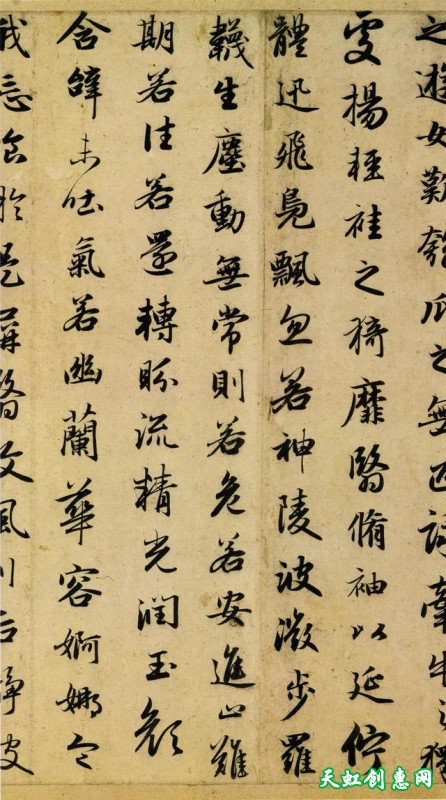 之遊女歎匏瓜之無匹詠牽牛之獨
處揚輕袿之猗靡翳脩袖以延佇
體迅飛鳧飄忽若神陵波微步羅
韈生塵動無常則若危若安進止難
期若往若還轉眄流精光潤玉顏
含辭未吐氣若幽蘭華容婀娜令
我忘食於是屏翳收風川后靜波
天虹创意网